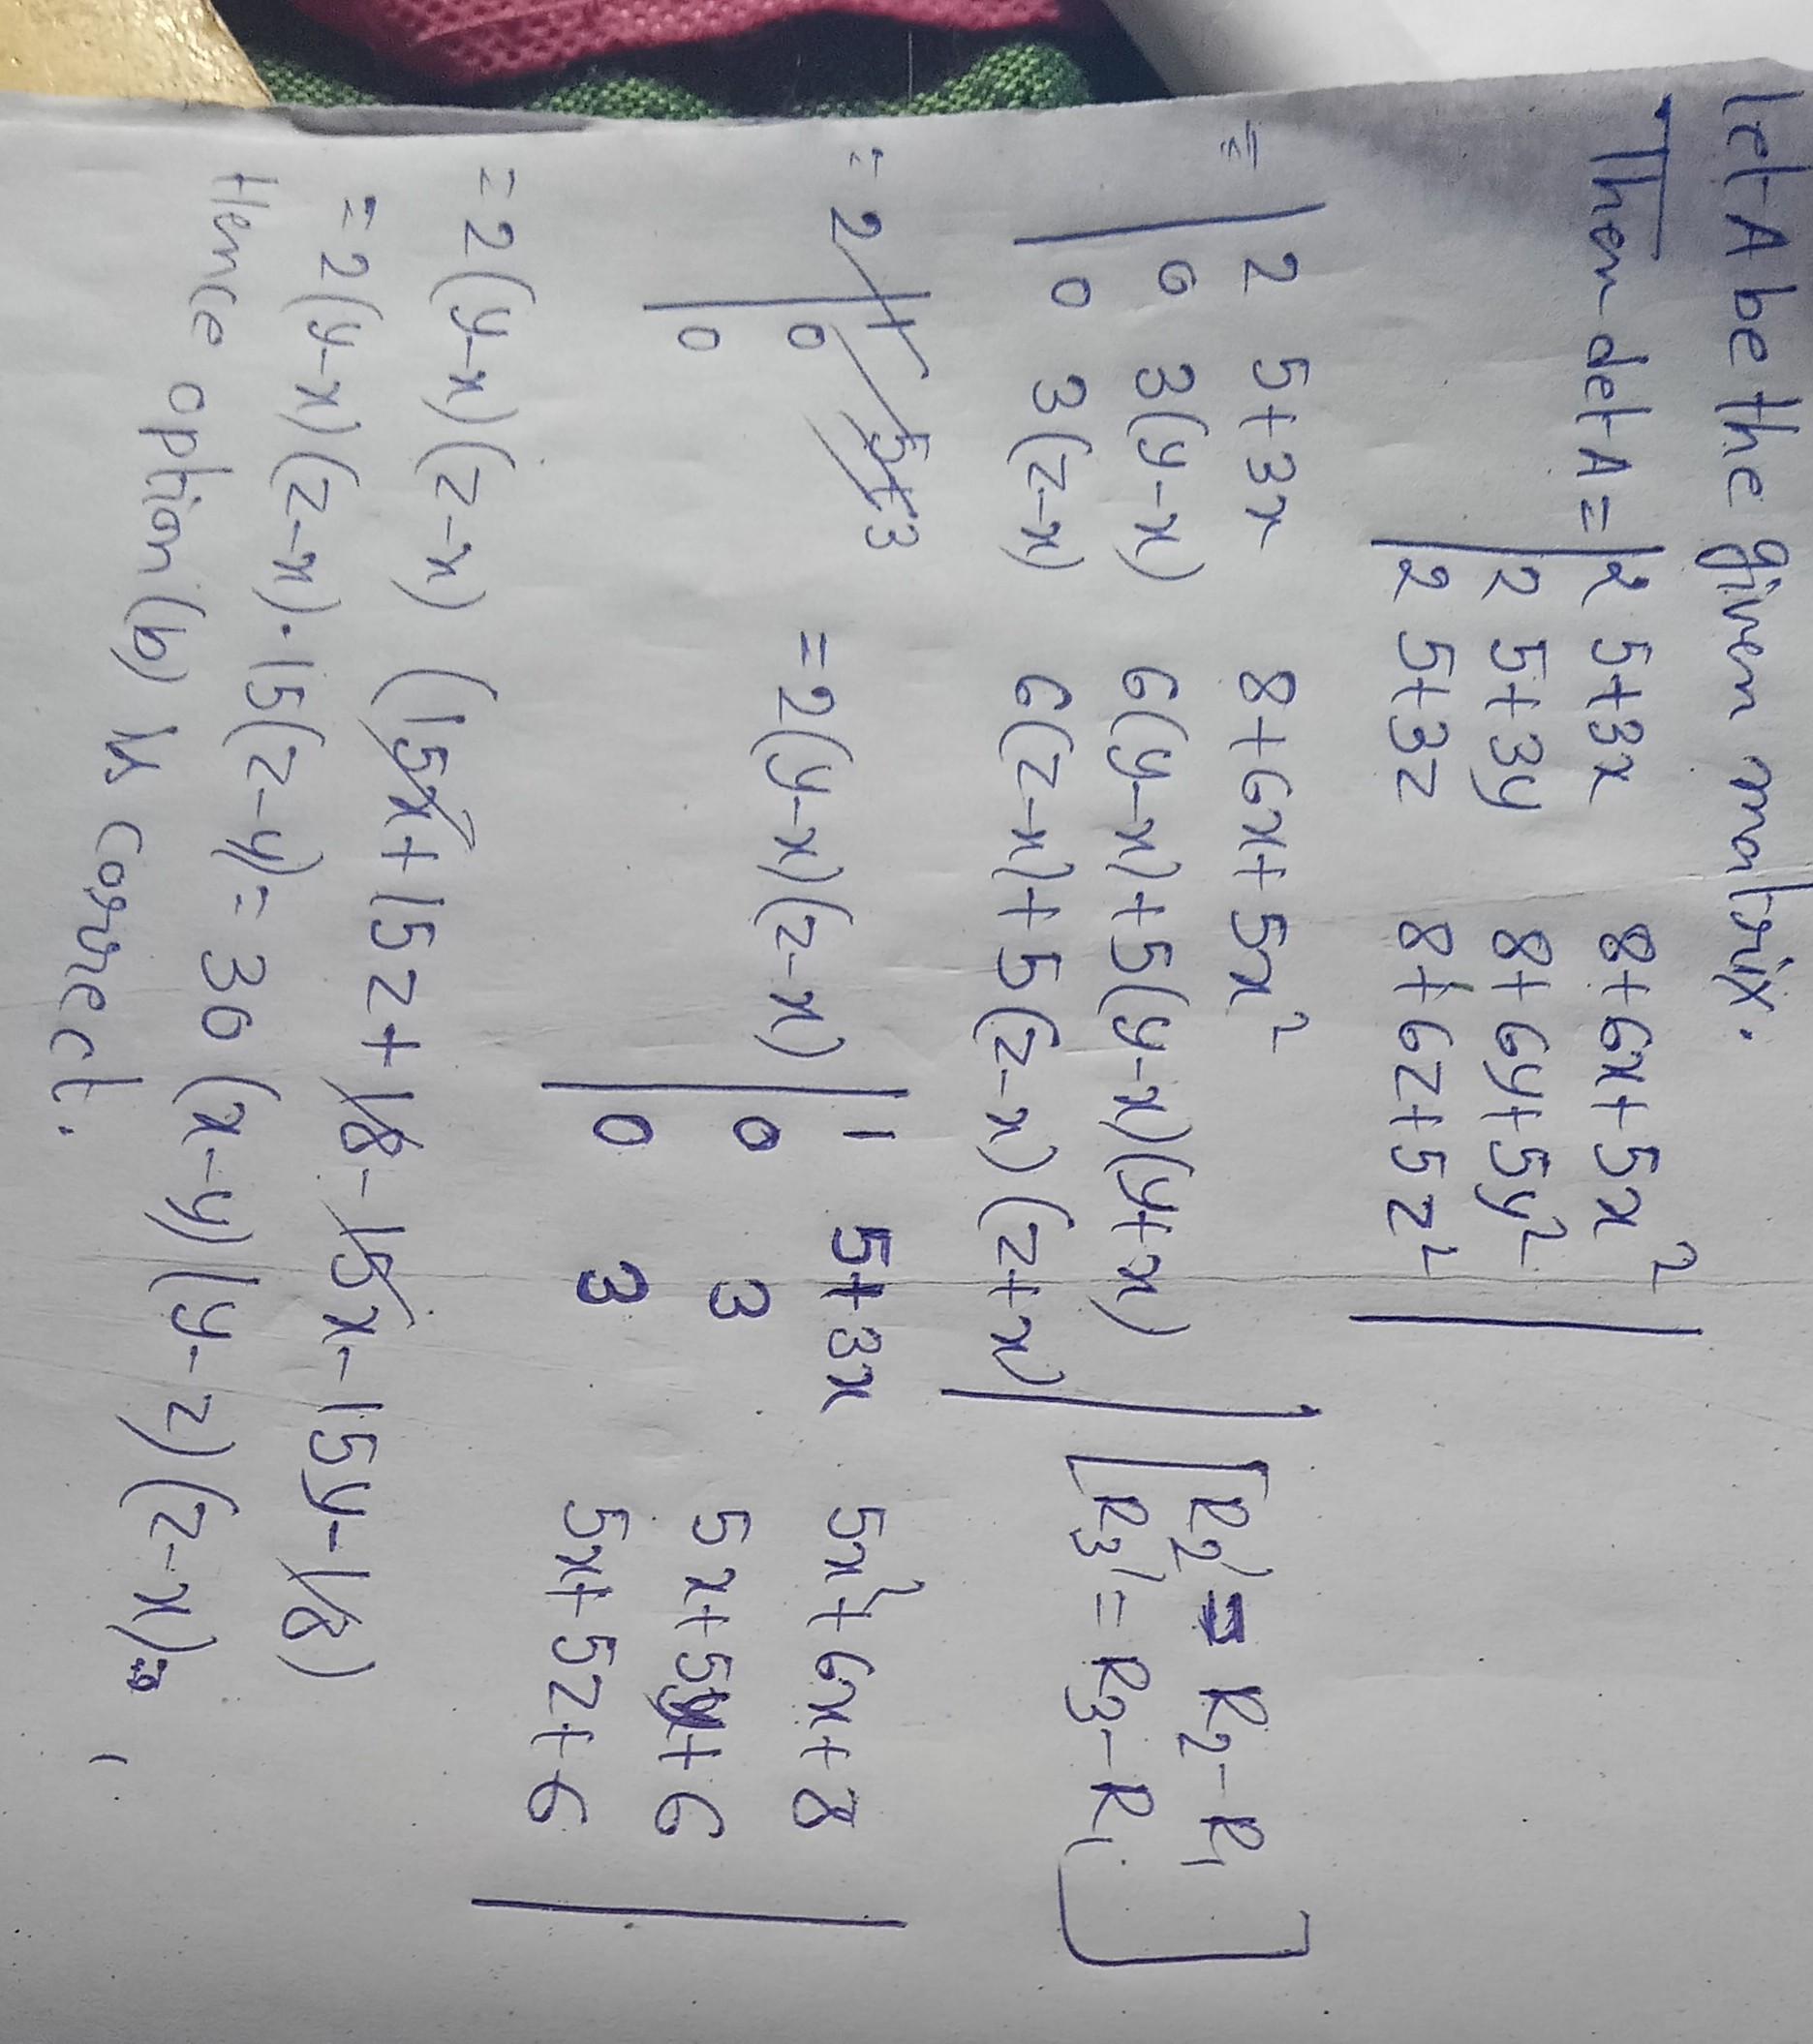 let A be the given matrix.
Then det A = | 2 5+3x 8+6x+5x² |
| 2 5+3y 8+6y+5y² |
| 2 5+3z 8+6z+5z² |
= | 2 5+3x 8+6x+5x² |
| 0 3(y-x) 6(y-x)+5(y-x)(y+x) | [R₂' = R₂-R₁
| 0 3(z-x) 6(z-x)+5(z-x)(z+x) | R₃' = R₃-R₁]
= 2 | 1 5+3
| 0
| 0
= 2(y-x)(z-x) | 1 5+3x 5x²+6x+8 |
| 0 3 5x+5y+6 |
| 0 3 5x+5z+6 |
= 2(y-x)(z-x) (15x+15z+18-15x-15y-18)
= 2(y-x)(z-x).15(z-y) = 30(x-y)(y-z)(z-x)
Hence option (b) is correct.